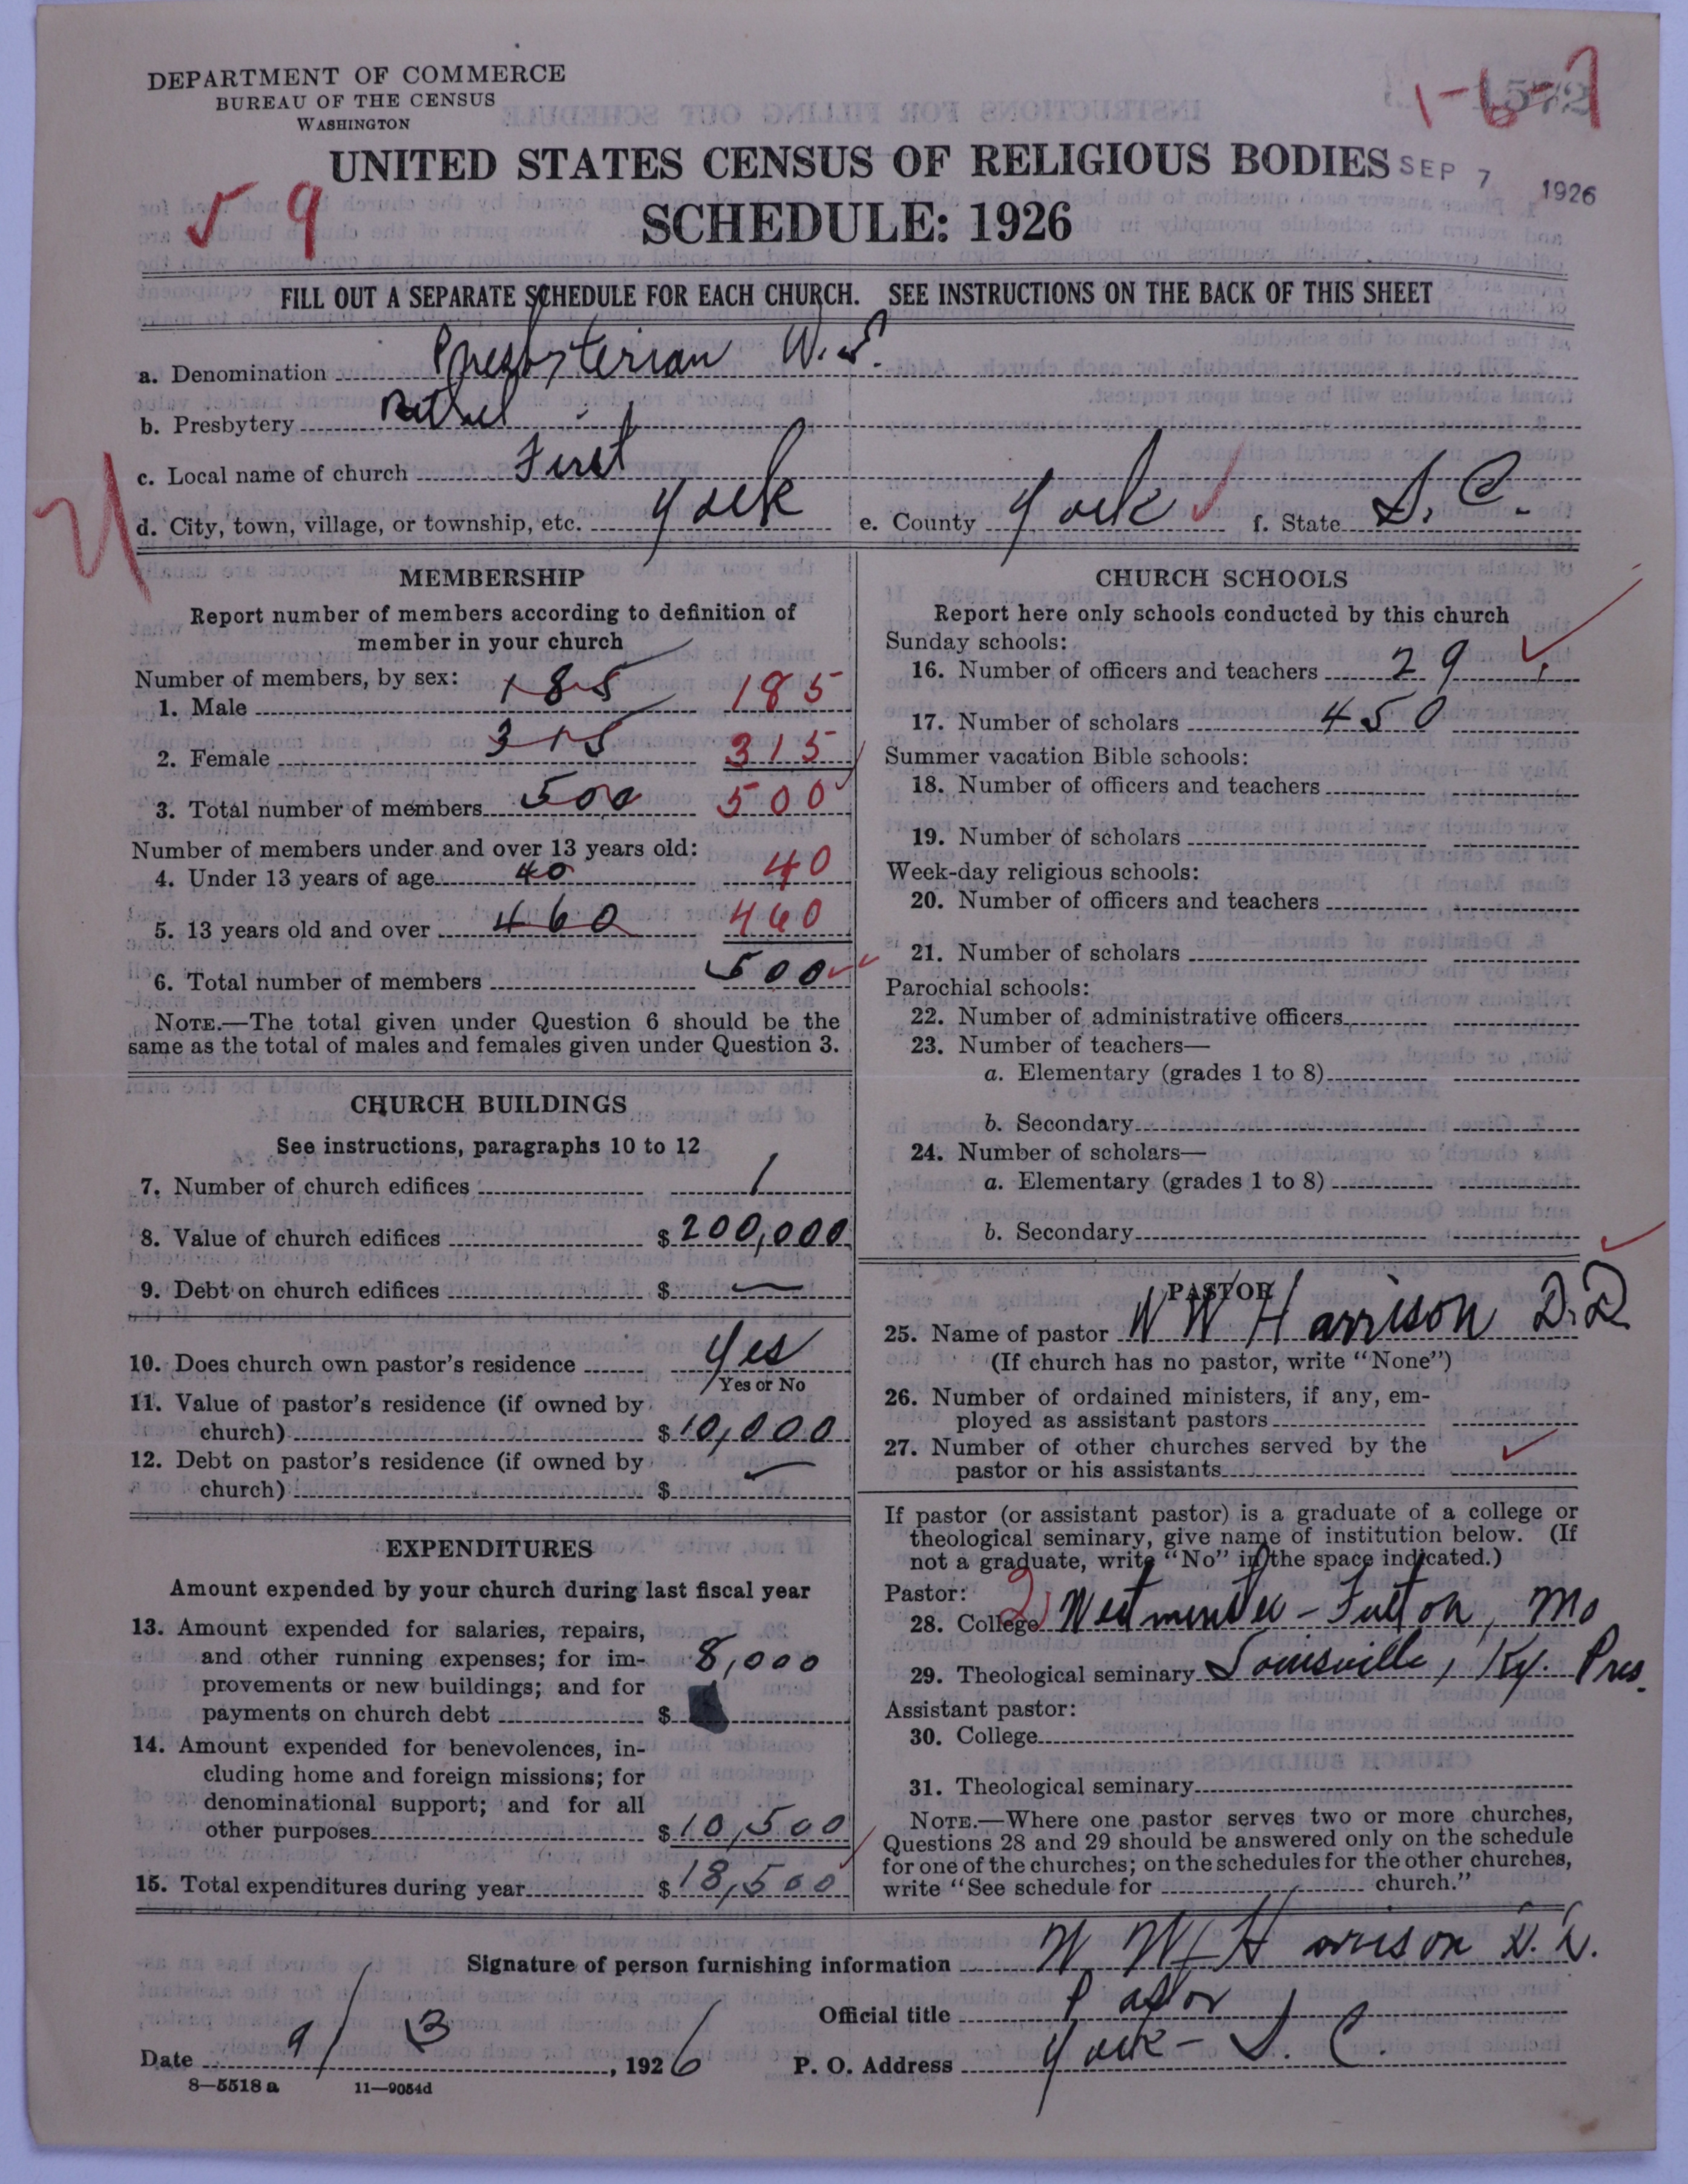 DEPARTMENT OF COMMERCE
BUREAU OF THE CENSUS
WASHINGTON
1-6-7
1572
UNITED STATES CENSUS OF RELIGIOUS BODIES
SEP 7 1926
9
SCHEDULE: 1926
FILL OUT A SEPARATE SCHEDULE FOR EACH CHURCH. SEE INSTRUCTIONS ON THE BACK OF THIS SHEET
a. Denomination Presbyterian U.S.
b. Presbytery Bethel
c. Local name of church First
d. City, town, village, or township, etc. York e. County York f. State S. C.
MEMBERSHIP
Report number of members according to definition of
member in your church
Number of members, by sex:
1. Male 185 185
2. Female 315 315
3. Total number of members 500 500
Number of members under and over 13 years old:
4. Under 13 years of age 40 40
5. 13 years old and over 460 460
6. Total number of members 500
NOTE.—The total given under Question 6 should be the
same as the total of males and females given under Question 3.
CHURCH BUILDINGS
See instructions, paragraphs 10 to 12
7. Number of church edifices 1
8. Value of church edifices $ 200,000
9. Debt on church edifices $ —
10. Does church own pastor's residence Yes
Yes or No
11. Value of pastor's residence (if owned by
church) $ 10,000
12. Debt on pastor's residence (if owned by
church) $ —
EXPENDITURES
Amount expended by your church during last fiscal year
13. Amount expended for salaries, repairs,
and other running expenses; for im-
provements or new buildings; and for
payments on church debt $ 8,000
14. Amount expended for benevolences, in-
cluding home and foreign missions; for
denominational support; and for all
other purposes $ 10,500
15. Total expenditures during year $ 18,500
CHURCH SCHOOLS
Report here only schools conducted by this church
Sunday schools:
16. Number of officers and teachers 29
17. Number of scholars 450
Summer vacation Bible schools:
18. Number of officers and teachers
19. Number of scholars
Week-day religious schools:
20. Number of officers and teachers
21. Number of scholars
Parochial schools:
22. Number of administrative officers
23. Number of teachers—
a. Elementary (grades 1 to 8)
b. Secondary
24. Number of scholars—
a. Elementary (grades 1 to 8)
b. Secondary
PASTOR
25. Name of pastor W W Harrison D.D.
(If church has no pastor, write "None")
26. Number of ordained ministers, if any, em-
ployed as assistant pastors
27. Number of other churches served by the
pastor or his assistants
If pastor (or assistant pastor) is a graduate of a college or
theological seminary, give name of institution below. (If
not a graduate, write "No" in the space indicated.)
Pastor:
28. College 2 Westminster - Fulton, Mo
29. Theological seminary Louisville, Ky. Pres.
Assistant pastor:
30. College
31. Theological seminary
NOTE.—Where one pastor serves two or more churches,
Questions 28 and 29 should be answered only on the schedule
for one of the churches; on the schedules for the other churches,
write "See schedule for church."
Signature of person furnishing information W W Harrison D.D.
Official title Pastor
Date 9/3, 1926 P. O. Address York - S. C.
8—5518 a 11—9054d